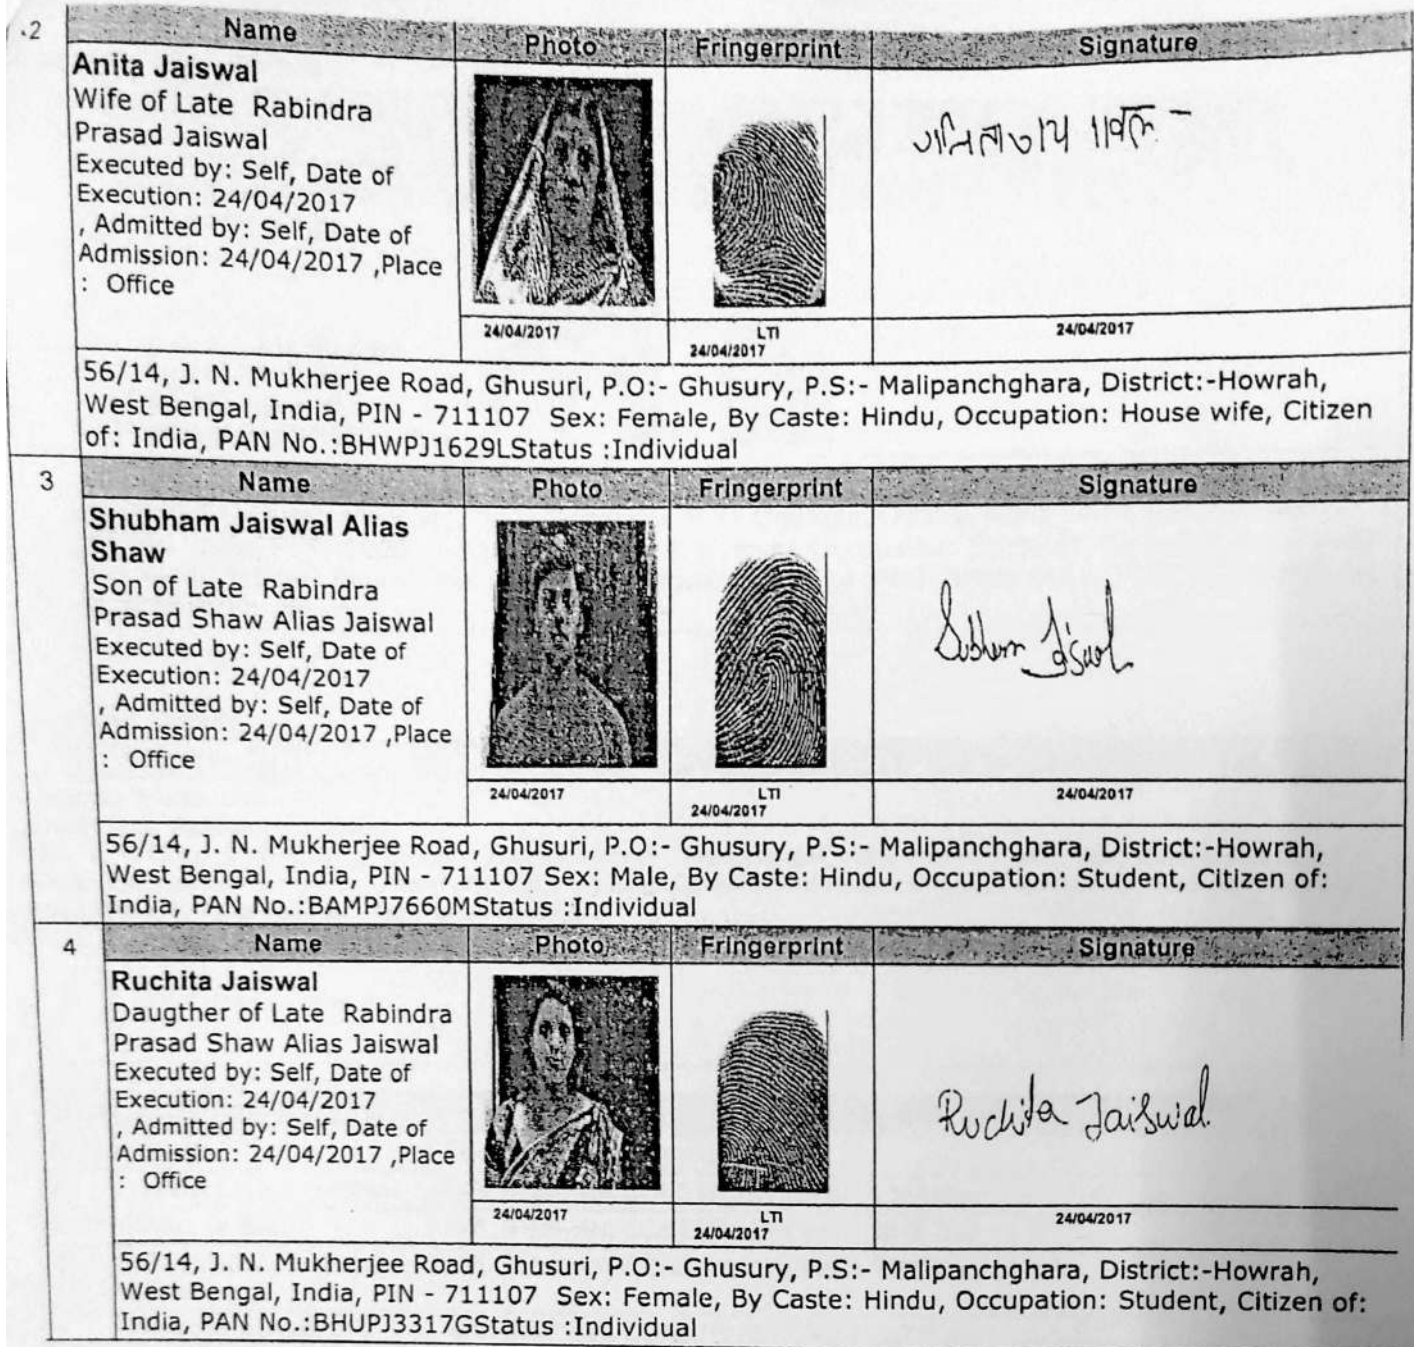 2
Name Photo Fringerprint Signature
Anita Jaiswal
Wife of Late Rabindra
Prasad Jaiswal
Executed by: Self, Date of
Execution: 24/04/2017
, Admitted by: Self, Date of
Admission: 24/04/2017 ,Place
: Office
24/04/2017 LTI 24/04/2017
24/04/2017
56/14, J. N. Mukherjee Road, Ghusuri, P.O:- Ghusury, P.S:- Malipanchghara, District:-Howrah,
West Bengal, India, PIN - 711107 Sex: Female, By Caste: Hindu, Occupation: House wife, Citizen
of: India, PAN No.:BHWPJ1629LStatus :Individual
3
Name Photo Fringerprint Signature
Shubham Jaiswal Alias
Shaw
Son of Late Rabindra
Prasad Shaw Alias Jaiswal
Executed by: Self, Date of
Execution: 24/04/2017
, Admitted by: Self, Date of
Admission: 24/04/2017 ,Place
: Office
24/04/2017 LTI 24/04/2017
24/04/2017
56/14, J. N. Mukherjee Road, Ghusuri, P.O:- Ghusury, P.S:- Malipanchghara, District:-Howrah,
West Bengal, India, PIN - 711107 Sex: Male, By Caste: Hindu, Occupation: Student, Citizen of:
India, PAN No.:BAMPJ7660MStatus :Individual
4
Name Photo Fringerprint Signature
Ruchita Jaiswal
Daugther of Late Rabindra
Prasad Shaw Alias Jaiswal
Executed by: Self, Date of
Execution: 24/04/2017
, Admitted by: Self, Date of
Admission: 24/04/2017 ,Place
: Office
Ruchita Jaiswal
24/04/2017 LTI 24/04/2017
24/04/2017
56/14, J. N. Mukherjee Road, Ghusuri, P.O:- Ghusury, P.S:- Malipanchghara, District:-Howrah,
West Bengal, India, PIN - 711107 Sex: Female, By Caste: Hindu, Occupation: Student, Citizen of:
India, PAN No.:BHUPJ3317GStatus :Individual